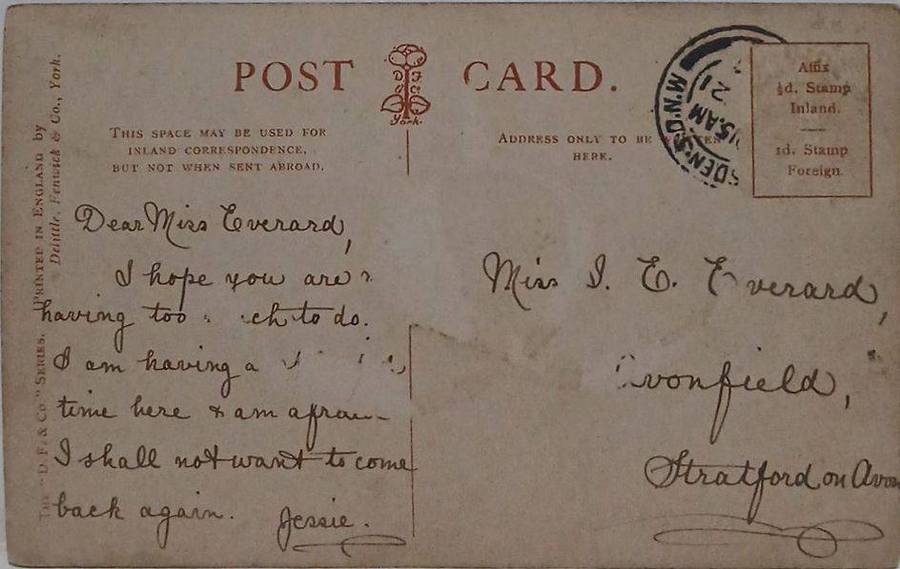 POST CARD.
D F
& Co
York.
THIS SPACE MAY BE USED FOR
INLAND CORRESPONDENCE,
BUT NOT WHEN SENT ABROAD.
ADDRESS ONLY TO BE
HERE.
Affix
½d. Stamp
Inland.
1d. Stamp
Foreign.
15.AM
21
N.W.D.O
THE "D. F. & Co." SERIES. PRINTED IN ENGLAND by
Delittle, Fenwick & Co., York.
Dear Miss Everard,
I hope you are
having too to do.
I am having a
time here & am
I shall not want to come
back again. Jessie.
Miss I. E. Everard,
Avonfield,
Stratford on Avon